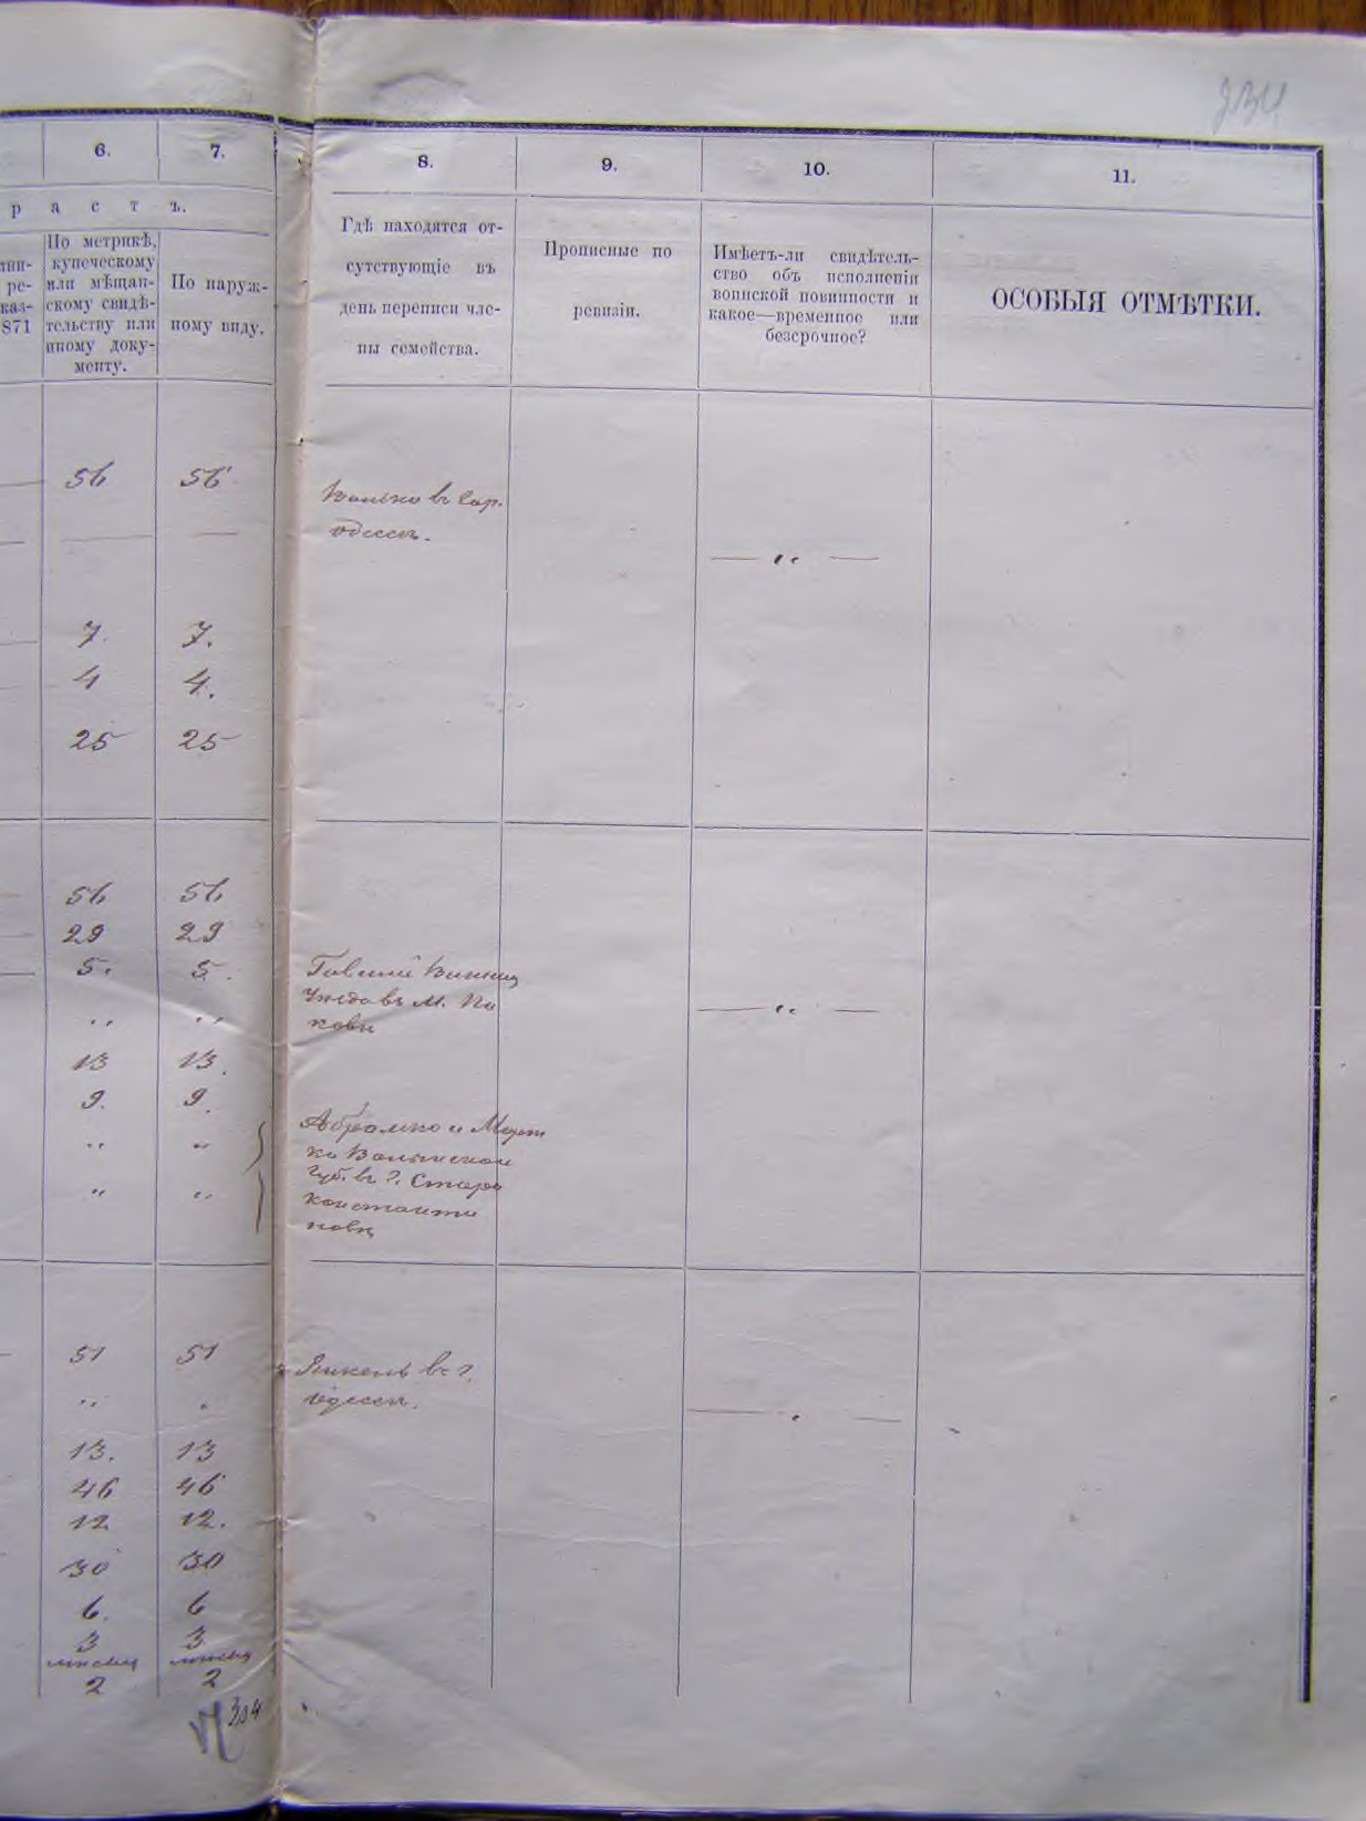 6.
7.
8.
9.
10.
11.
р а с т ъ.
По метрикѣ,
купеческому
или мѣщан-
скому свидѣ-
тельству или
иному доку-
менту.
ре-
каз-
871
По наруж-
ному виду.
Гдѣ находятся от-
сутствующіе въ
день переписи чле-
ны семейства.
Прописные по
ревизіи.
Имѣетъ-ли свидѣтель-
ство объ исполненіи
воинской повинности и
какое—временное или
безсрочное?
ОСОБЫЯ ОТМѢТКИ.
56 56
Волько въ
Одессѣ.
— „ —
7. 7.
4 4.
25 25
56 56
29 29
5. 5.
Винниц
уѣзда въ М. Пи
ковѣ
„ „
— „ —
13 13.
9. 9.
„ „
„ „
Абрамко и
ко Волынской
Губ. въ г. Старо
константи
новѣ
51 51
„ „
Янкель въ г.
Одессѣ.
13. 13
46 46
12 12.
30 30
6. 6
3 3
мѣсяц мѣсяц
2 2
304